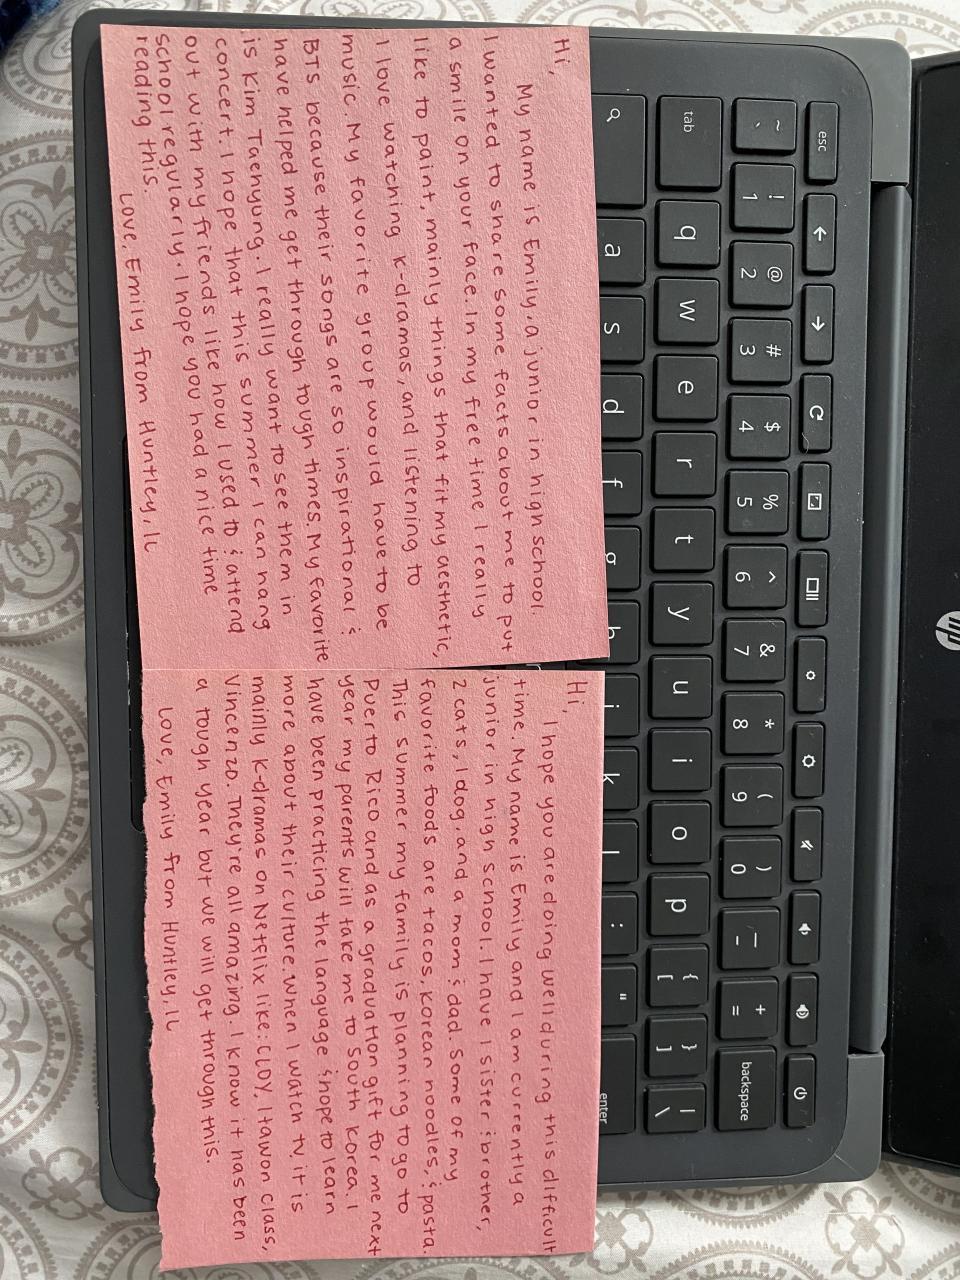 Hi,
My name is Emily, a junior in high school.
I wanted to share some facts about me to put
a smile on your face. In my free time I really
like to paint, mainly things that fit my aesthetic,
I love watching K-dramas, and listening to
music. My favorite group would have to be
BTS because their songs are so inspirational &
have helped me get through tough times. My favorite
is Kim Taehyung. I really want to see them in
concert. I hope that this summer I can hang
out with my friends like how I used to & attend
school regularly. I hope you had a nice time
reading this.
Love, Emily from Huntley, IL
Hi,
I hope you are doing well during this difficult
time. My name is Emily and I am currently a
junior in high school. I have 1 sister, 1 brother,
2 cats, 1 dog, and a mom & dad. Some of my
favorite foods are tacos, korean noodles, & pasta.
This summer my family is planning to go to
Puerto Rico and as a graduation gift for me next
year my parents will take me to South Korea. I
have been practicing the language & hope to learn
more about their culture. When I watch tv, it is
mainly K-dramas on Netflix like: CLOY, Itawon Class,
Vincenzo. They're all amazing. I know it has been
a tough year but we will get through this.
Love, Emily from Huntley, IL
esc
~ ` ! 1 @ 2 # 3 $ 4 % 5 ^ 6 & 7 * 8 ( 9 ) 0 _ - + = backspace
tab q w e r t y u i o p { [ } ] | \
a s d f g h j k l : " enter
hp